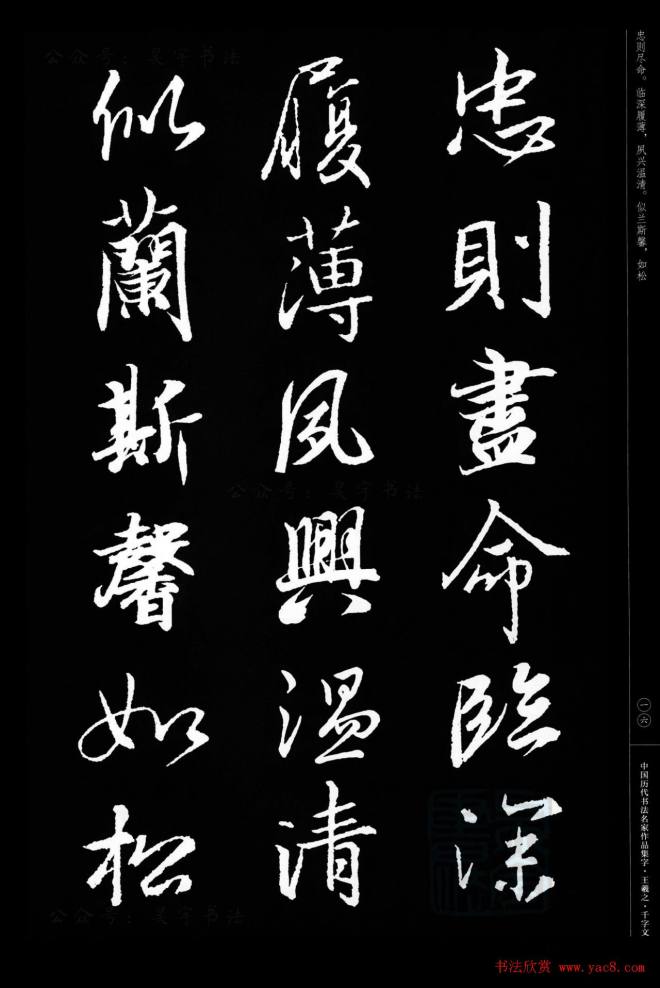 忠則盡命臨深
履薄夙興溫清
似蘭斯馨如松
忠则尽命。临深履薄，夙兴温清。似兰斯馨，如松
一六
中国历代书法名家作品集字·王羲之·千字文
公众号：吴宇书法
公众号：吴宇书法
公众号：吴宇书法
书法欣赏 www.yac8.com